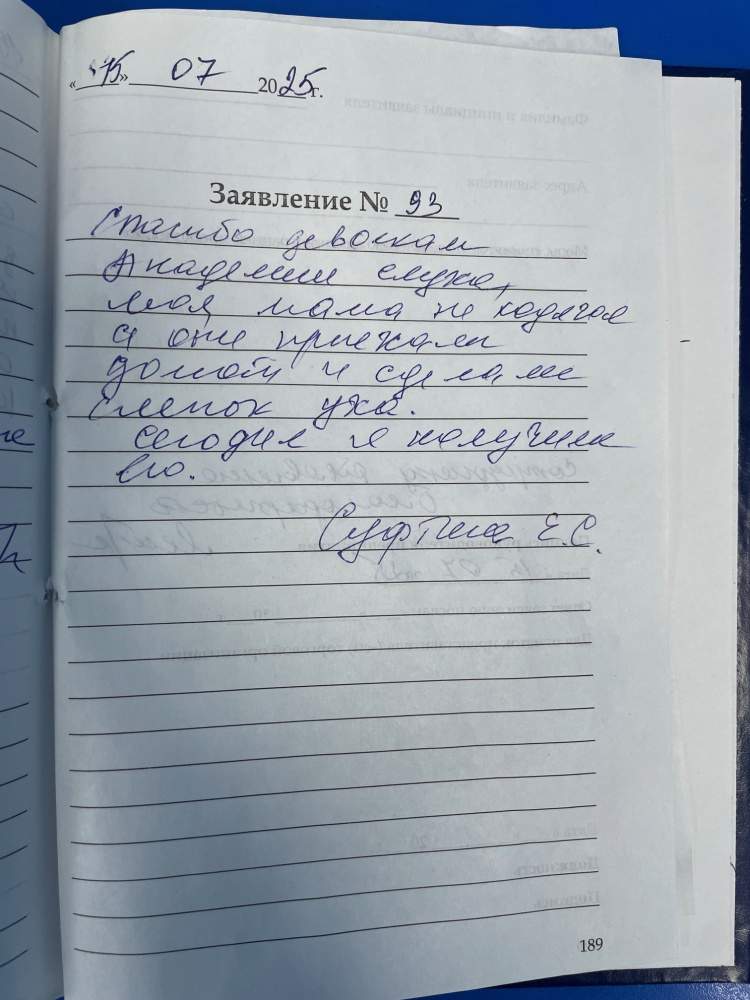 «15» 07 2025 г.
Заявление № 93
Спасибо девочкам
Академии слуха,
моя мама не ходячая
а они приехали
домой и сделали
слепок уха.
Сегодня я получила
его.
Суфтина Е.С.
189